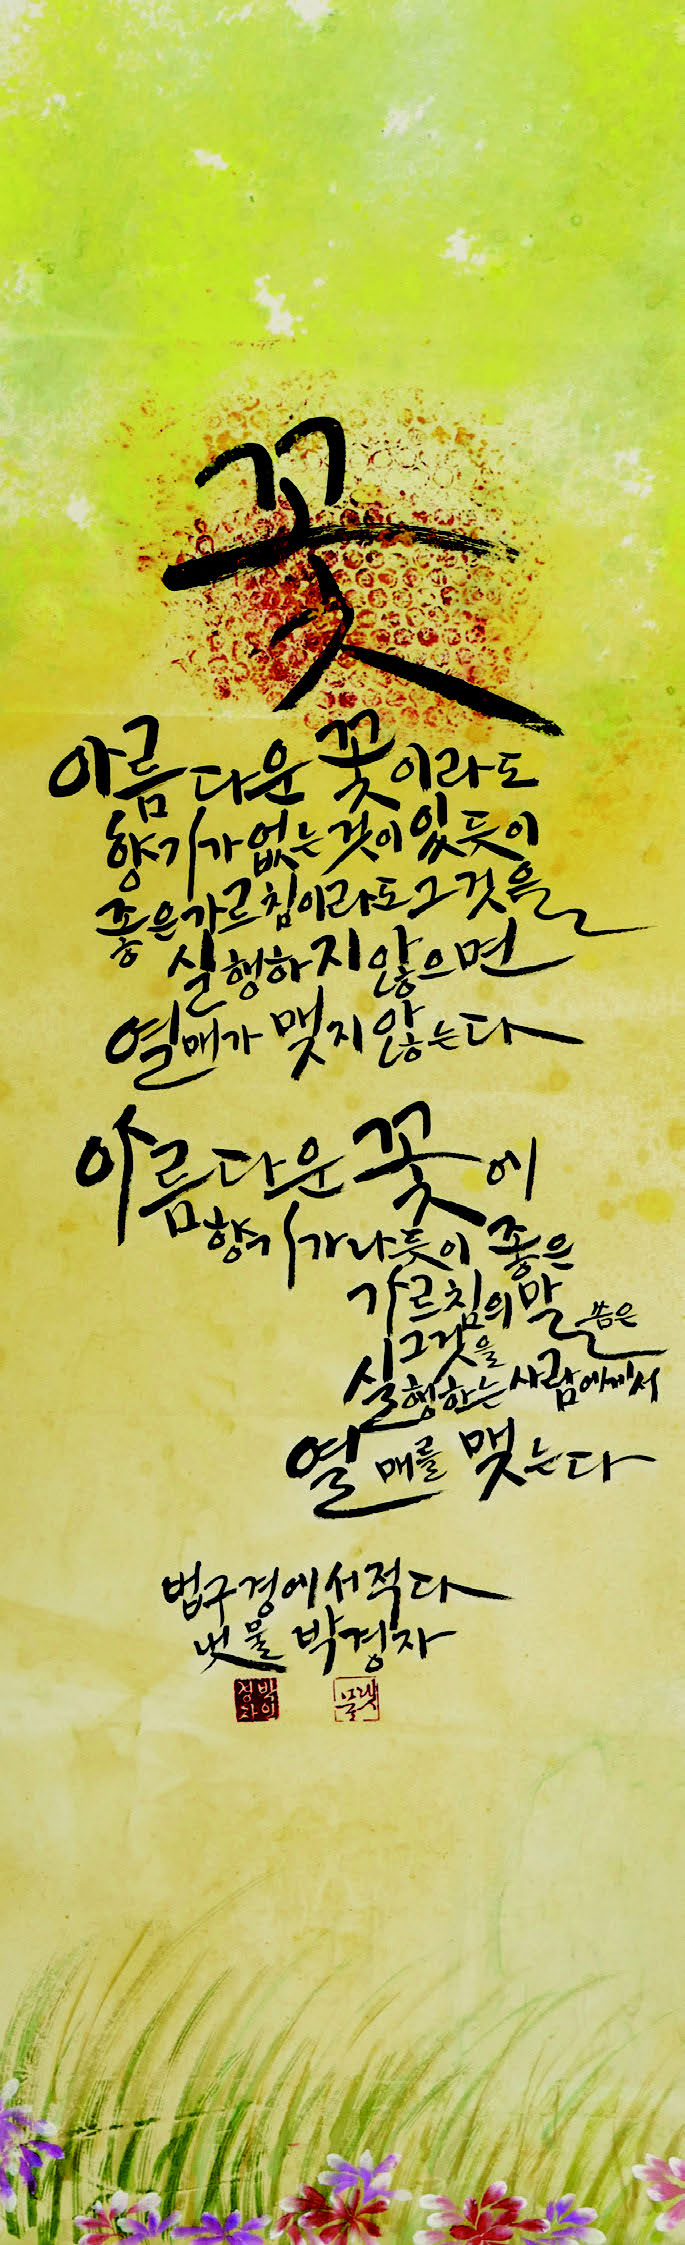 꽃
아름다운 꽃이라도
향기가 없는 것이 있듯이
좋은 가르침이라도 그것을
실행하지 않으면
열매가 맺지 않는다
아름다운 꽃에
향기가 나듯이 좋은
가르침의 말씀은
그것을
실행하는 사람에게서
열매를 맺는다
법구경에서 적다
냇물 박경자